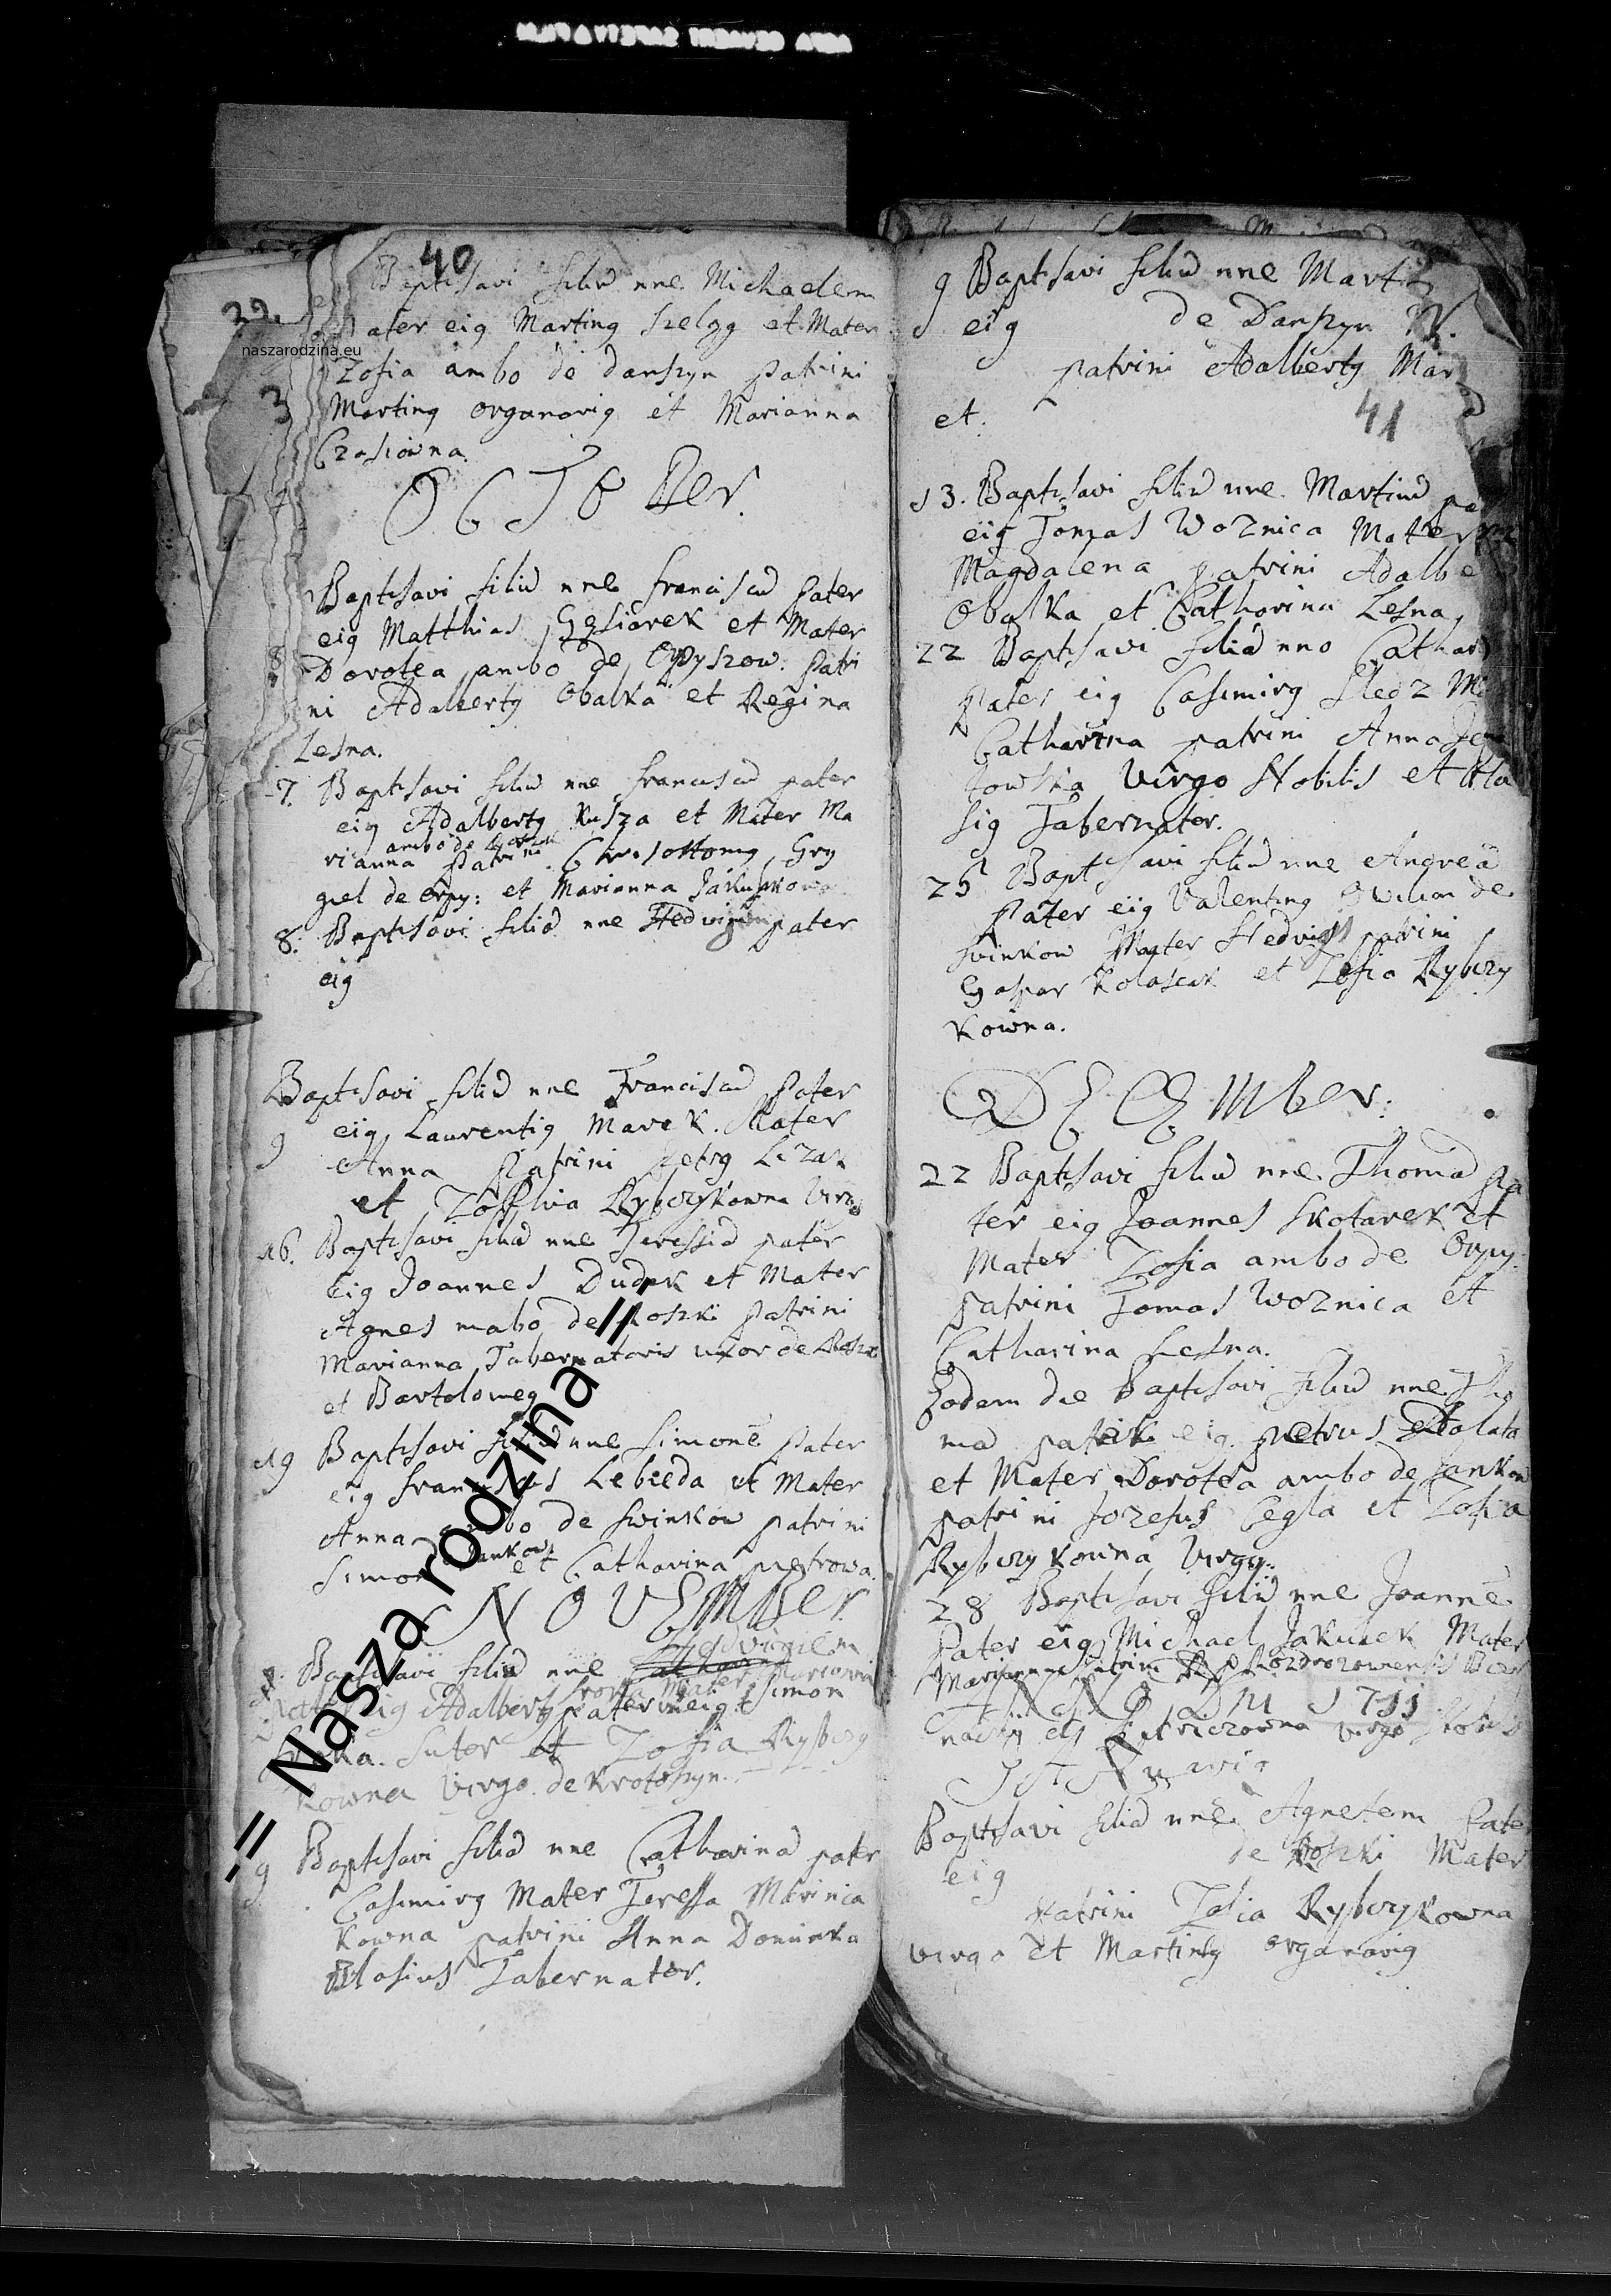 40
22.
naszarodzina.eu
Baptisavi filiū nne Michaelem
Pater eiꝰ Martinꝰ et Mater
Zofia ambo de danszyn patrini
3 Martinꝰ organariꝰ et Marianna
Czasiowna.
OCTOBer.
Baptisavi filiū nne franciscū pater
eiꝰ Matthias et Mater
8 Dorotea ambo de Orpyszow. patri
ni Adalbertꝰ Obalka et Regina
Lesna.
7. Baptisavi filiū nne franciscū pater
eiꝰ Adalbertꝰ Kusza et Mater Ma
ambo de
rianna patrini Grisostomꝰ Gry
giel de orpy: et Marianna
8. Baptisavi filiā nne Hedvigem pater
eiꝰ
Baptisavi filiū nne Franciscū pater
9 eiꝰ Laurentiꝰ Marek. Mater
Anna patrini petrꝰ Lizak
et Zophia Rybczykowna Virgo
16. Baptisavi filiā nne Teressiā pater
eiꝰ Joannes Dudek et Mater
Agnes mabo de Roszki patrini
Marianna Tabernatoris uxor de Roszk
et Bartolomeꝰ
19 Baptisavi filiū nne Simonē pater
eiꝰ franciscus Lebieda et Mater
Anna ambo de swinkow patrini
Jankow
Simon et Catharina pietrowa.
NOVEMBer.
Hedvigem
Baptisavi filiā nne Catharinā
Mater
eiꝰ Adalbertꝰ pater Simon
Sutor et Zofia Rybczy
kowna Virgo de Krotoszyn.
9 Baptisavi filiā nne Catharinā pater
Casimirꝰ Mater Teressa Marinia
kowna patrini Anna Doninka
Blasius Tabernator.
-= Nasza rodzina =-
9 Baptisavi filiū nne Marti
eiꝰ de Danszyn
patrini Adalbertꝰ Mar
et.
41
13. Baptisavi filiū nne. Martinū pa
eiꝰ Tomas Woznica Mater
Magdalena patrini Adalbe
Obalka et Catharina Lesna,
22 Baptisavi filiā nno Cathari
pater eiꝰ Casimirꝰ Sledz Ma
Catharina patrini Anna
towska Virgo Nobilis et Bla
siꝰ Tabernator.
25 Baptisavi filiū nne Andreā
Pater eiꝰ Valentinꝰ de
svinkow Mater Hedvigis patrini
Gaspar Kolascak et Zofia Rybczy
kowna.
DECEMber:
22 Baptisavi filiū nne Thomā pa
ter eiꝰ Joannes Skotarek et
Mater Zofia ambo de Orpy:
patrini Tomas Woznica et
Catharina Lesna.
Eodem die Baptisavi filiū nne Tho
mā pater eiꝰ. pietrus
et Mater Dorotea ambo de Jankow
patrini Jozefus Cegla et Zofia
Rybczykowna Virgo:
28 Baptisavi filiū nne Joannē
Pater eiꝰ Michael Jakubek Mater
Marianna patrini
ANNO Dni 1711
virgo
JANuariꝰ
Baptisavi filiā nne Agnetem Pater
eiꝰ de Roszki Mater
Patrini Zofia Rybczykowna
virgo et Martinꝰ organariꝰ